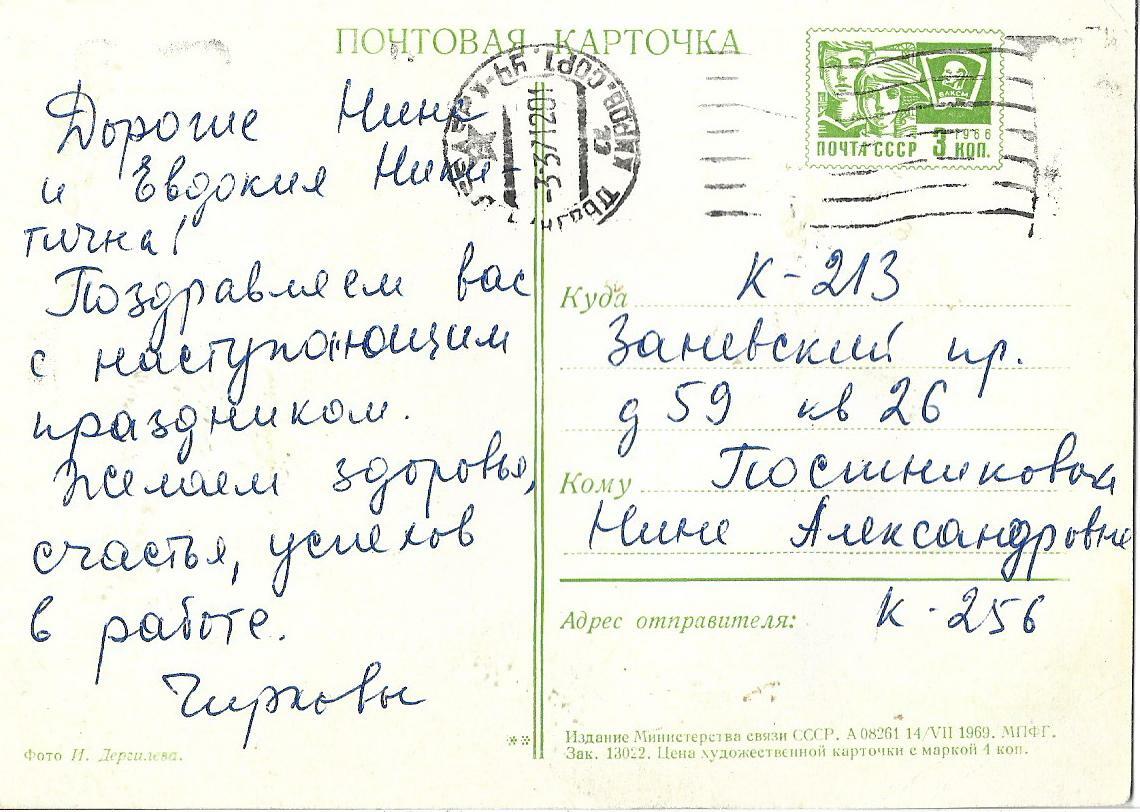 ПОЧТОВАЯ КАРТОЧКА
Дорогие Нина
и Евдокия Ники-
тична!
Поздравляем вас
с наступающим
праздником.
Желаем здоровья,
счастья, успехов
в работе.
Чирковы
Фото И. Дергилева.
ВЛКСМ
1966
ПОЧТА СССР 3 КОП.
-3-371201
Куда К-213
Заневский пр.
д 59 кв 26
Кому Постниковой
Нине Александровне
Адрес отправителя: К-256
Издание Министерства связи СССР. А 08261 14/VII 1969. МПФГ.
Зак. 13022. Цена художественной карточки с маркой 4 коп.